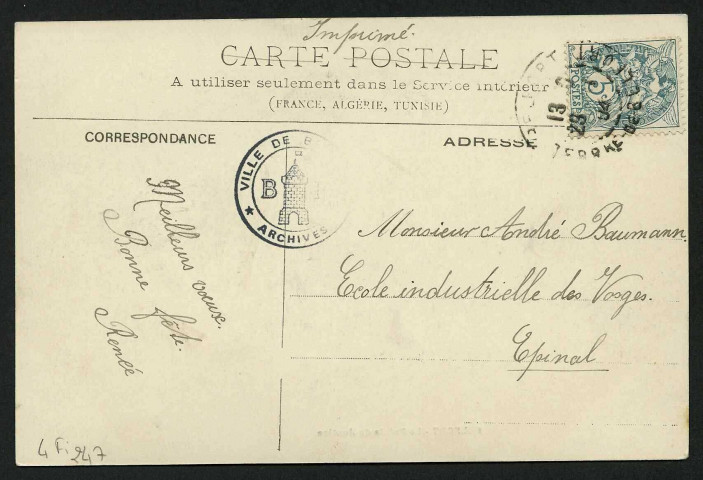 Imprimé.
CARTE POSTALE
A utiliser seulement dans le Service intérieur
(FRANCE, ALGÉRIE, TUNISIE)
CORRESPONDANCE
ADRESSE
VILLE DE B
B
ARCHIVES
5
POSTES
13
23
Meilleurs vœux.
Bonne fête.
Renée
Monsieur André Baumann.
Ecole industrielle des Vosges.
Epinal
4 Fi 247